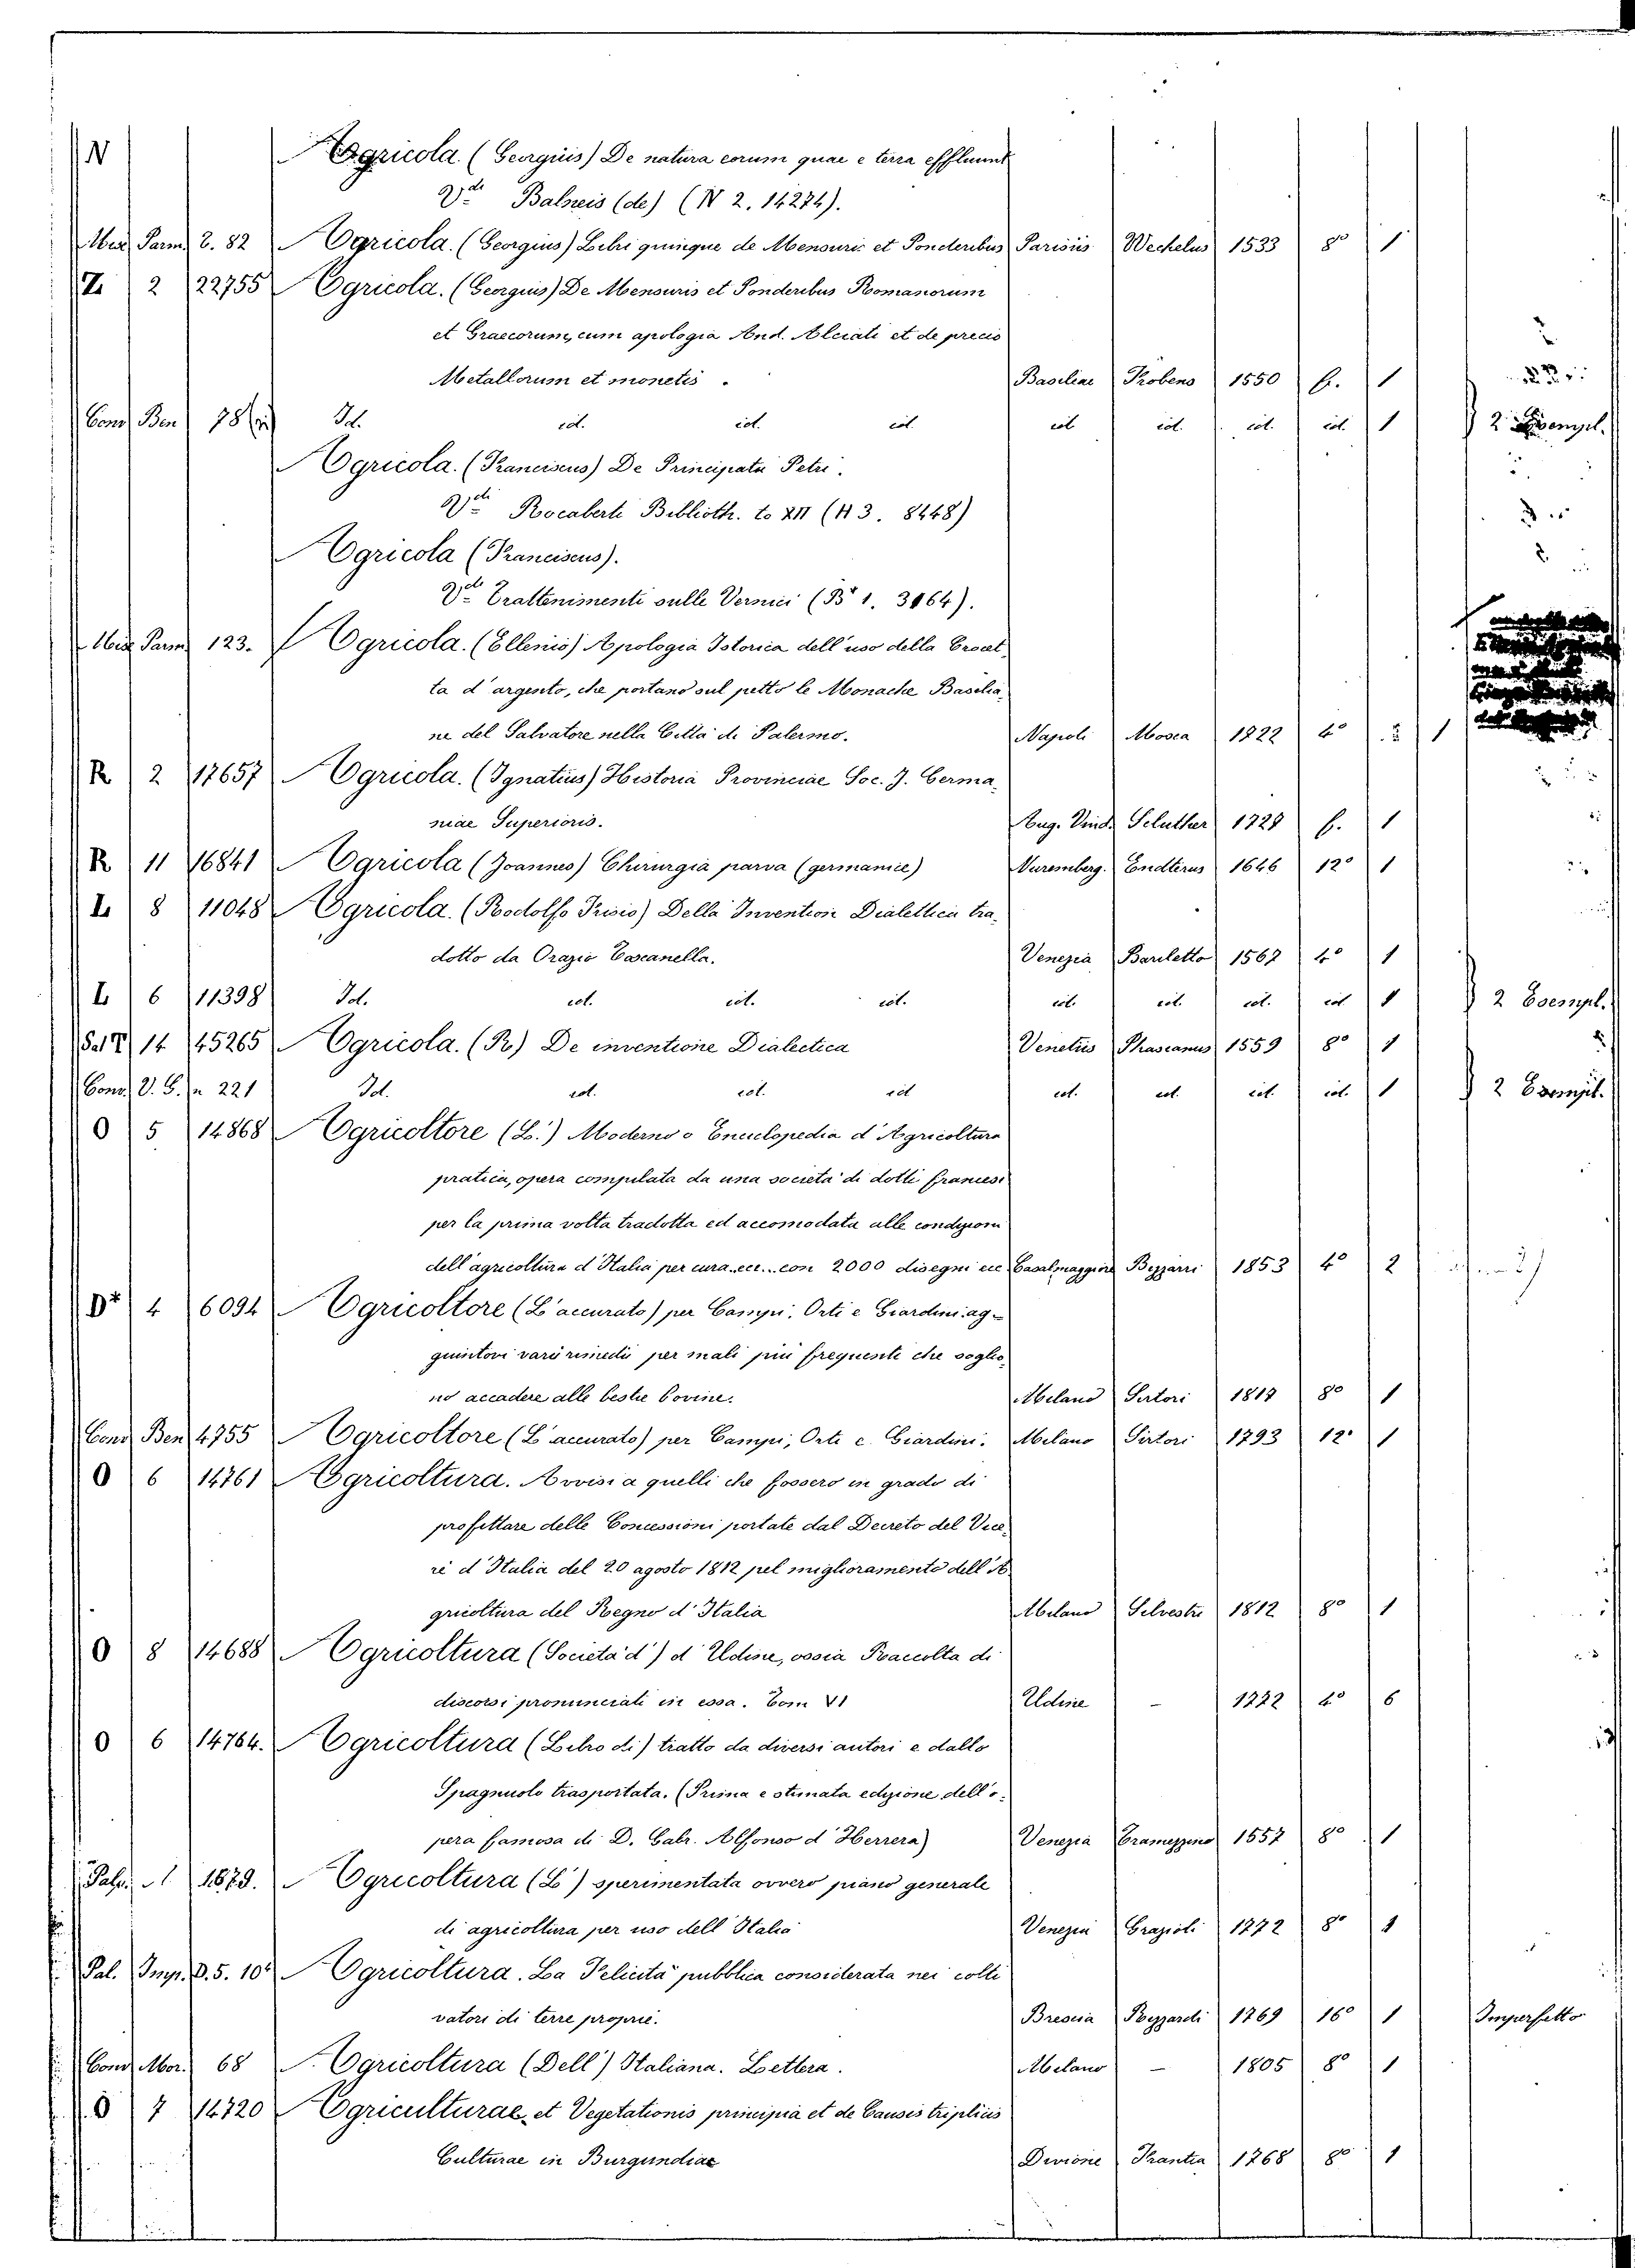 N Agricola. (Georgius) De natura eorum quae e terra effluunt
V.di Balneis (de) (N 2. 14274).
Misc Parm 2. 82 Agricola. (Georgius) Libri quinque de Mensuris et Ponderibus Parisiis Wechelus 1533 8º 1
Z 2 22755 Agricola. (Georgius) De Mensuris et Ponderibus Romanorum
et Graecorum, cum apologia And. Alciati et de precio
Metallorum et monetis. Basileae Frobens 1550 f. 1
Cons Ben 78 Id. id. id. id. id. id. id. id. 1 2 Esempl.
Agricola. (Franciscus) De Principatu Petri.
V.di Rocaberti Biblioth. to XII (H 3. 8448)
Agricola (Franciscus).
V.di Trattenimenti sulle Vernici (B 1. 3164).
Misc Parm 123. Agricola. (Ellenio) Apologia Istorica dell'uso della Crocet
ta d'argento, che portano sul petto le Monache Basilia
ne del Salvatore nella Città di Palermo. Napoli Mosca 1722 4º 1
R 2 17657 Agricola. (Ignatius) Historia Provinciae Soc. J. Germa
niae Superioris. Aug. Vind. Schuther 1727 f. 1
R 11 16841 Agricola (Joannes) Chirurgia parva (germanice) Nuremberg. Endterus 1646 12º 1
L 8 11048 Agricola. (Rodolfo Frisio) Della Invention Dialettica tra
dotto da Orazio Toscanella. Venezia Bariletto 1567 4º 1
L 6 11398 Id. id. id. id. id. id. id. id 1 2 Esempl.
Sal T 14 45265 Agricola. (R.) De inventione Dialectica Venetiis Phascanus 1559 8º 1
Cons V. S. n 221 Id. id. id. id id. id. id. id. 1 2 Esempl.
O 5 14868 Agricoltore (L') Moderno o Enciclopedia d'Agricoltura
pratica, opera compilata da una società di dotti francesi
per la prima volta tradotta ed accomodata alle condizioni
dell'agricoltura d'Italia per cura ecc... con 2000 disegni ecc Casalmaggiore Bizzarri 1853 4º 2
D 4 6094 Agricoltore (L'accurato) per Campi, Orti e Giardini ag
giuntovi varii rimedii per mali più frequenti che soglio
no accadere alle bestie bovine. Milano Sirtori 1817 8º 1
Cons Ben 4755 Agricoltore (L'accurato) per Campi, Orti e Giardini. Milano Sirtori 1793 12º 1
O 6 14761 Agricoltura. Avvisi a quelli che fossero in grado di
profittare delle Concessioni portate dal Decreto del Vice
re d'Italia del 20 agosto 1812 pel miglioramento dell'A
gricoltura del Regno d'Italia Milano Silvestri 1812 8º 1
O 8 14688 Agricoltura (Società d') d'Udine, ossia Raccolta di
discorsi pronunciati in essa. Tom VI Udine – 1772 4º 6
O 6 14764. Agricoltura (Libro di) tratto da diversi autori e dallo
Spagnuolo trasportata. (Prima e stimata edizione dell'o
pera famosa di D. Gabr. Alfonso d'Herrera) Venezia Tramezzino 1557 8º 1
Palp. 1 1679. Agricoltura (L') sperimentata ovvero piano generale
di agricoltura per uso dell'Italia Venezia Grazioli 1772 8º 1
Pal. Imp. D. 5. 10 Agricoltura. La Felicità pubblica considerata nei colti
vatori di terre proprie. Brescia Rizzardi 1769 16º 1 Imperfetto
Cons Mor. 68 Agricoltura (Dell') Italiana. Lettera. Milano – 1805 8º 1
O 7 14720 Agriculturae et Vegetationis principia et de Causis triplicis
Culturae in Burgundiae Divione Frantin 1768 8º 1